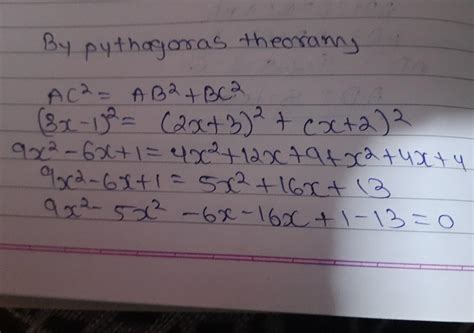 By pythagorras theoram,
AC² = AB² + BC²
(3x-1)² = (2x+3)² + (x+2)²
9x² - 6x + 1 = 4x² + 12x + 9 + x² + 4x + 4
9x² - 6x + 1 = 5x² + 16x + 13
9x² - 5x² - 6x - 16x + 1 - 13 = 0